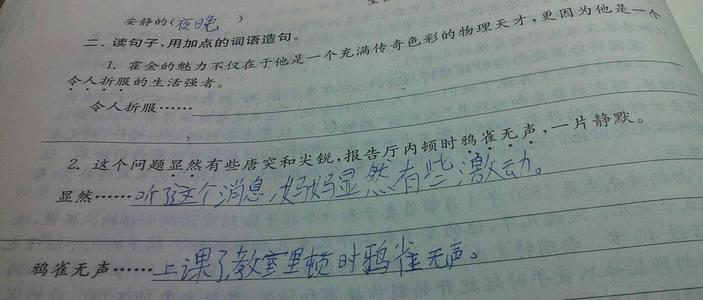 安静的(夜晚)
二、读句子,用加点的词语造句。
1. 霍金的魅力不仅在于他是一个充满传奇色彩的物理天才,更因为他是一个
令人折服的生活强者。
令人折服……
2. 这个问题显然有些唐突和尖锐,报告厅内顿时鸦雀无声,一片静默。
显然……听了这个消息,妈妈显然有些激动。
鸦雀无声……上课了,教室里顿时鸦雀无声。